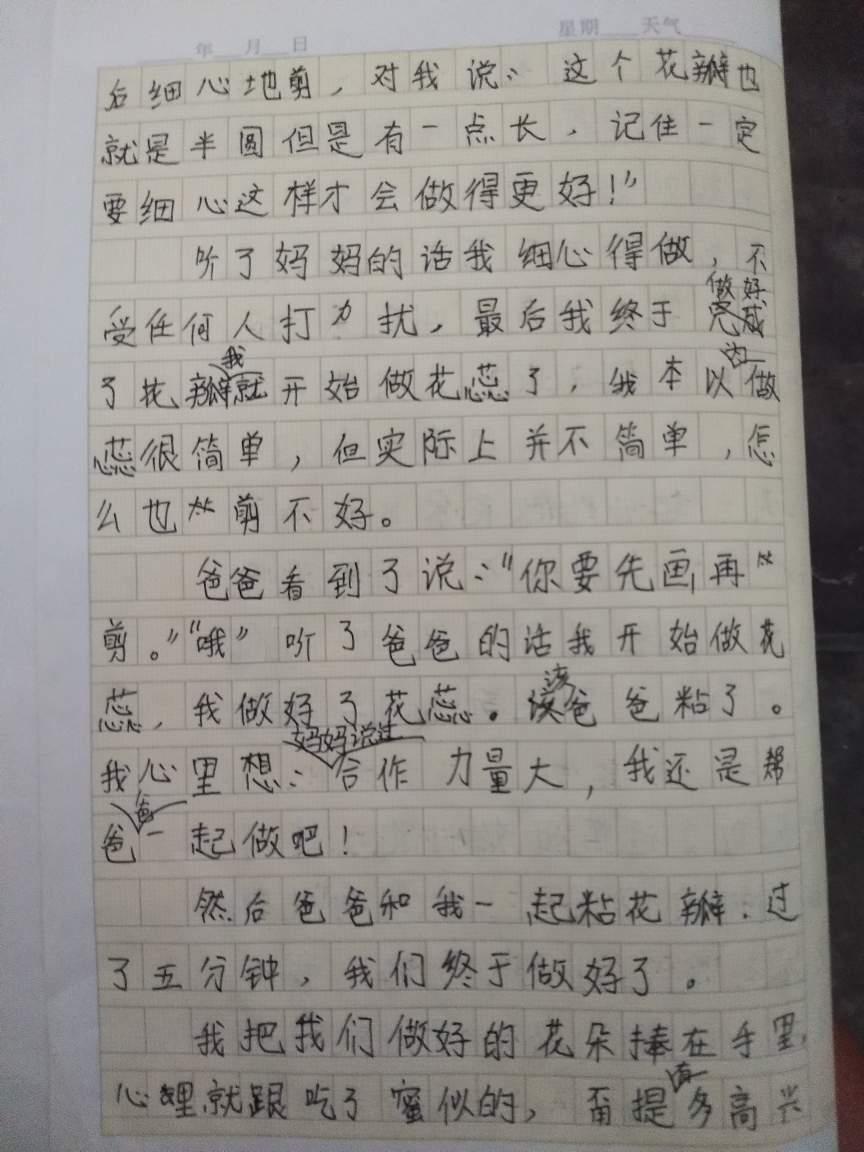 年 月 日 星期 天气
后细心地剪，对我说：这个花瓣也
就是半圆但是有一点长，记住一定
要细心这样才会做得更好！”
听了妈妈的话我细心得做，不
做好
受任何人打力扰，最后我终于完成
我 为
了花瓣就开始做花蕊了，我本以做
蕊很简单，但实际上并不简单，怎
么也剪不好。
爸爸看到了说：“你要先画再
剪。”“哦”听了爸爸的话我开始做花
该
蕊，我做好了花蕊。爸爸粘了。
妈妈说过
我心里想：合作力量大，我还是帮
爸
爸一起做吧！
然后爸爸和我一起粘花瓣．过
了五分钟，我们终于做好了。
我把我们做好的花朵捧在手里，
有
心里就跟吃了蜜似的，甭提多高兴